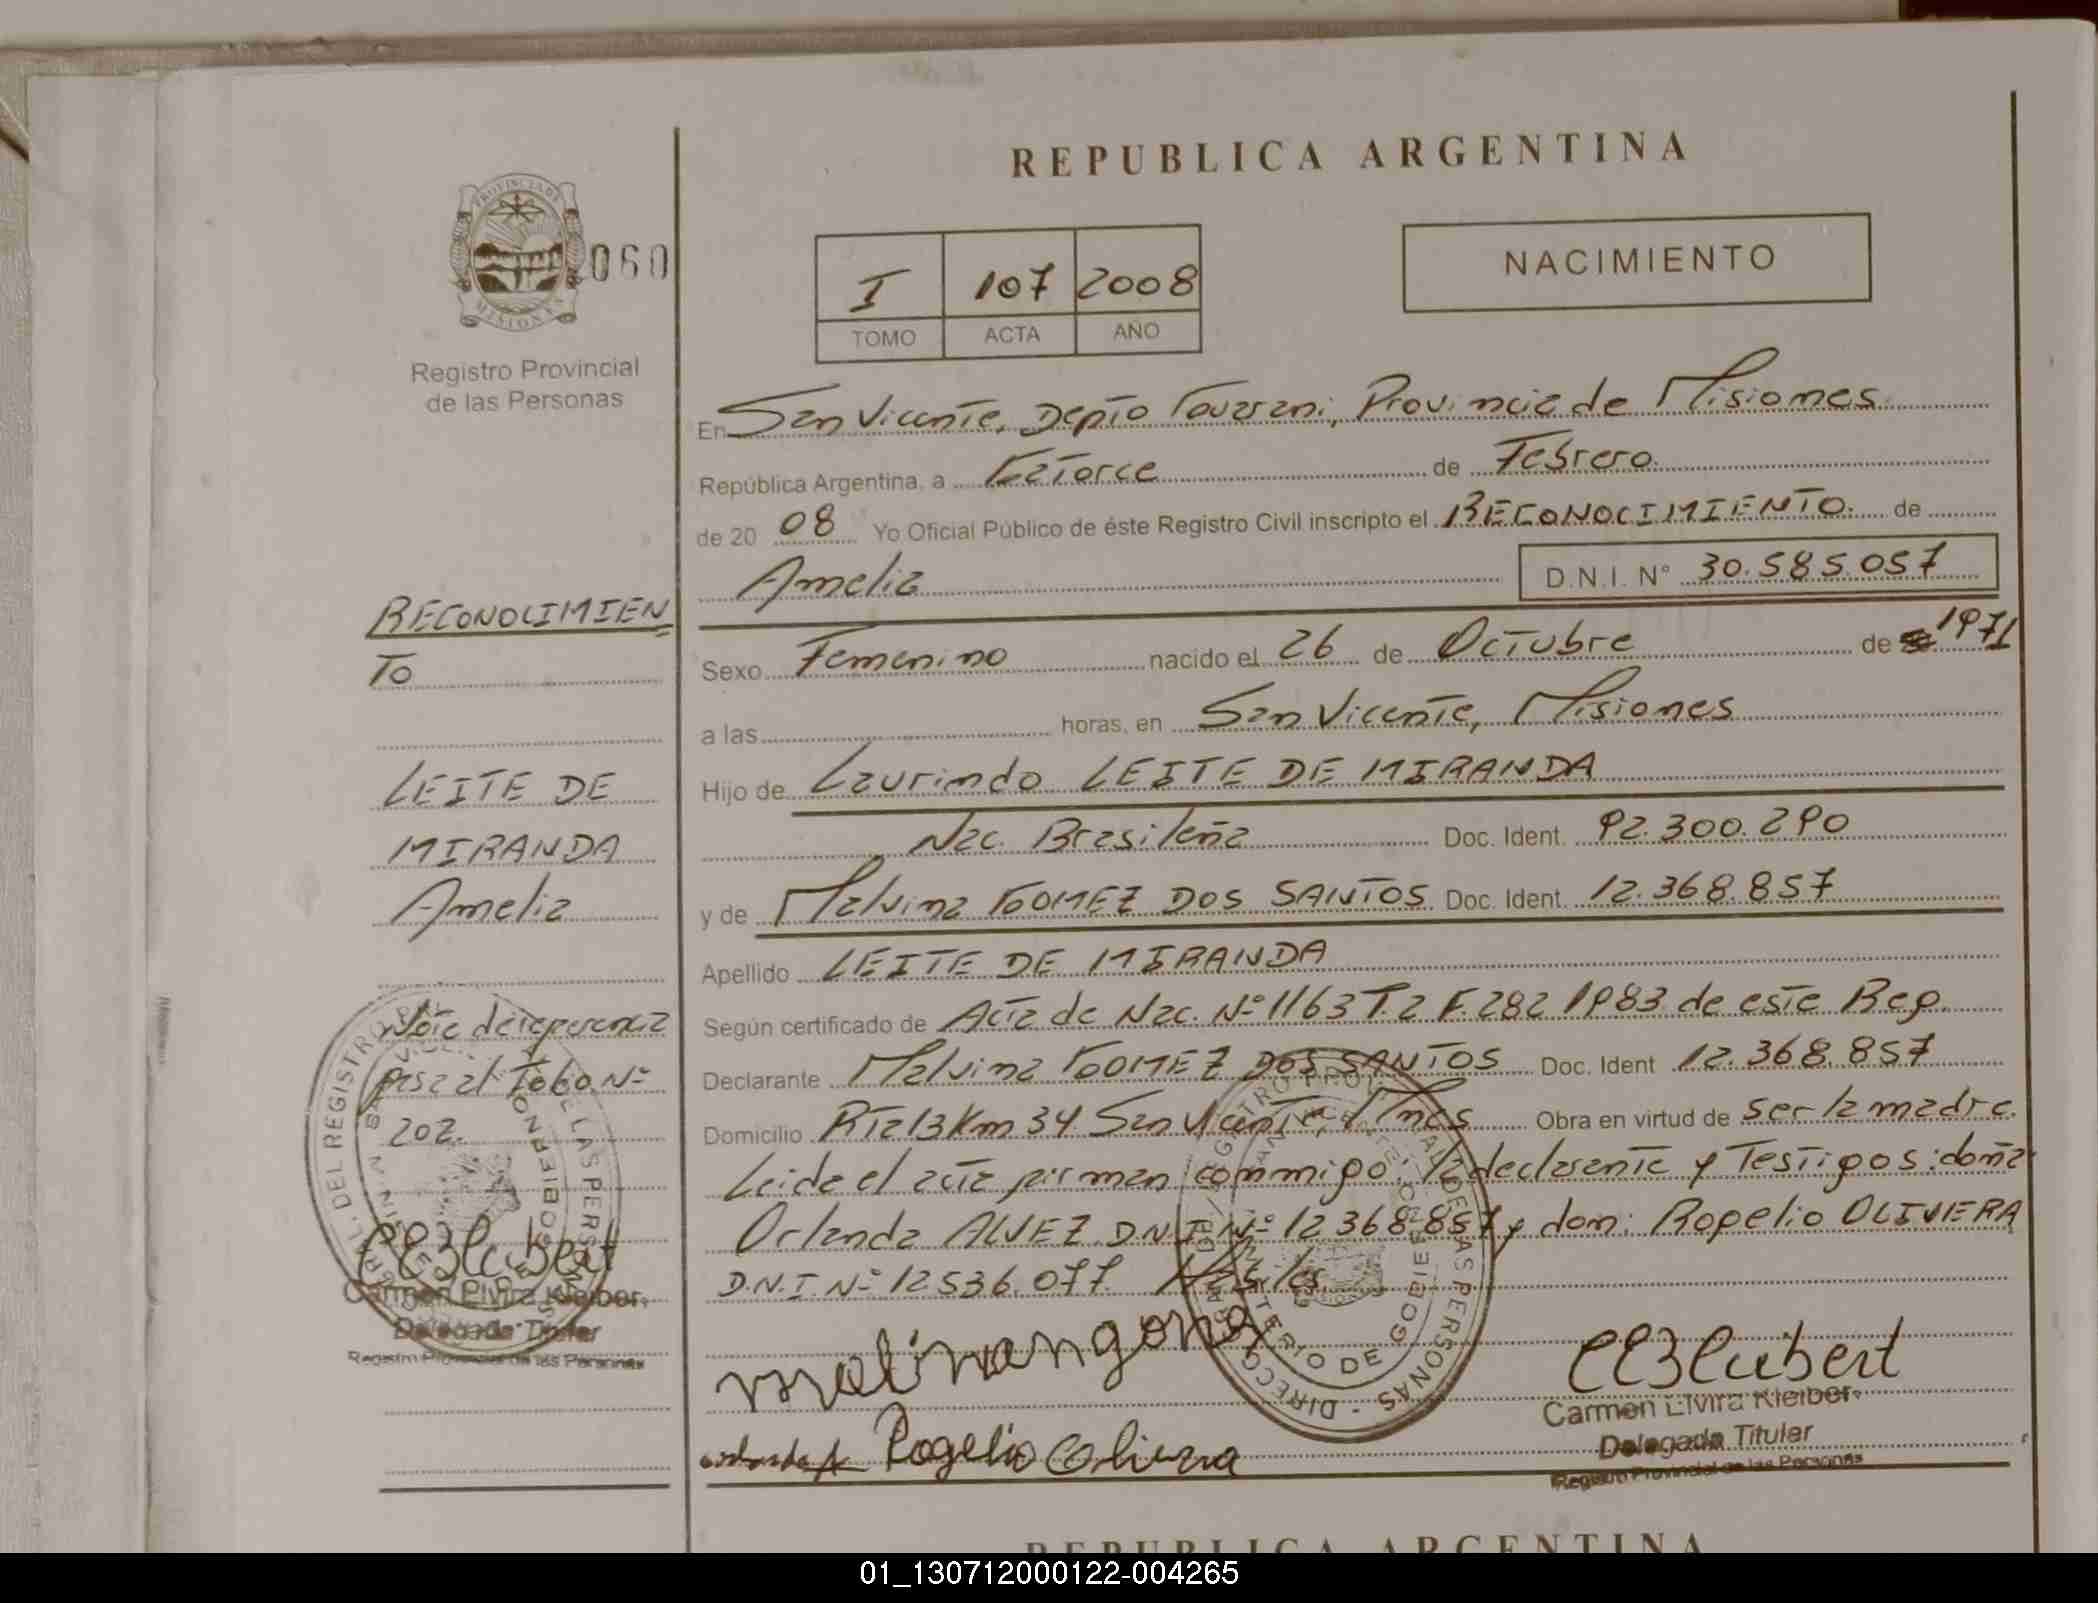 REPUBLICA ARGENTINA
PROVINCIA DE
MISIONES
060
Registro Provincial
de las Personas
I 107 2008
TOMO ACTA AÑO
NACIMIENTO
En San Vicente, Depto Guarani, Provincia de Misiones
República Argentina, a Catorce de Febrero
de 20 08 Yo Oficial Público de éste Registro Civil inscripto el RECONOCIMIENTO. de
Amelia D.N.I. Nº 30.585.057
Sexo Femenino nacido el 26 de Octubre de 1971
a las horas, en San Vicente, Misiones
Hijo de Laurindo LEITE DE MIRANDA
Nac. Brasileña Doc. Ident. 92.300.290
y de Malvina GOMEZ DOS SANTOS Doc. Ident. 12.368.857
Apellido LEITE DE MIRANDA
Según certificado de Acta de Nac. Nº 1163 T.2 F.282 1983 de este Reg.
Declarante Malvina GOMEZ DOS SANTOS Doc. Ident 12.368.857
Domicilio Rta 13 Km 34 San Vicente, Mnes Obra en virtud de ser la madre.
Leida el acta firman conmigo: la declarante y Testigos: doña
Orlanda ALVEZ D.N.I. Nº 12.368.857 y don: Rogelio OLIVERA
D.N.I. Nº 12536.077.
Rogelio Olivera
Carmen Elvira Kleiber
Delegada Titular
Registro Provincial de las Personas
RECONOCIMIEN
TO
LEITE DE
MIRANDA
Amelia
Nota de referencia
pasa al Folio Nº
202.
Carmen Elvira Kleiber
Delegada Titular
Registro Provincial de las Personas
REPUBLICA ARGENTINA
01_130712000122-004265